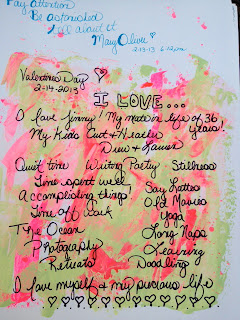 Pay attention
Be astonished
Tell about it
Mary Oliver
2-13-13
Valentines Day
2-14-2013
I LOVE...
I love Jimmy! My mate in life of 36 years!
My Kids Curt & Heather
Drew & Lauren
Quiet time Writing Poetry Stillness
Time spent well Soy Lattes
Accomplishing things! Old Movies
Time of Work Yoga
The Ocean Long Naps
Photography Learning
Retreats Doodling
I love myself & my precious life